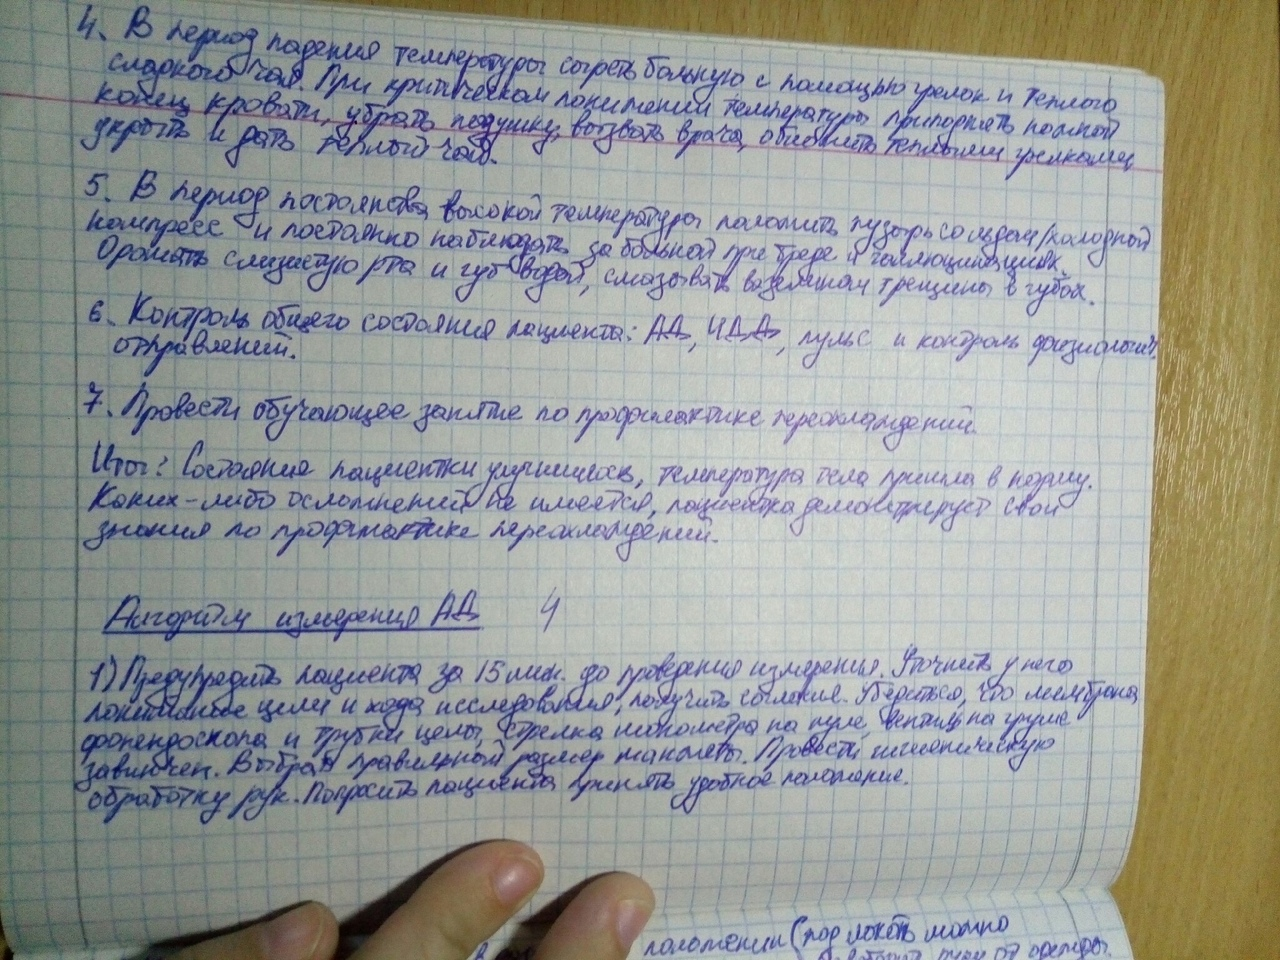 4. В период падения температуры согреть больную с помощью грелок и теплого
сладкого чая. При критическом понижении температуры приподнять ножной
конец кровати, убрать подушку, вызвать врача, обложить теплыми грелками,
укрыть и дать теплый чай.
5. В период постоянства высокой температуры положить пузырь со льдом/холодный
компресс и постоянно наблюдать за больной при бреде и галлюцинациях.
Орошать слизистую рта и губ водой, смазывать вазелином трещины в губах.
6. Контроль общего состояния пациента: АД, ЧДД, пульс и контроль физиологич.
отправлений.
7. Провести обучающее занятие по профилактике переохлаждений.
Итог: Состояние пациентки улучшилось, температура тела пришла в норму.
Каких-либо осложнений не имеется, пациентка демонстрирует свои
знания по профилактике переохлаждений.
Алгоритм измерения АД 4
1) Предупредить пациента за 15 мин. до проведения измерения. Уточнить у него
понимание цели и хода исследования, получить согласие. Убедиться, что мембрана
фонендоскопа и трубки целы, стрелка монометра на нуле, вентиль на груше
завинчен. Выбрать правильный размер манжеты. Провести гигиеническую
обработку рук. Попросить пациента принять удобное положение.
положении (под локоть можно